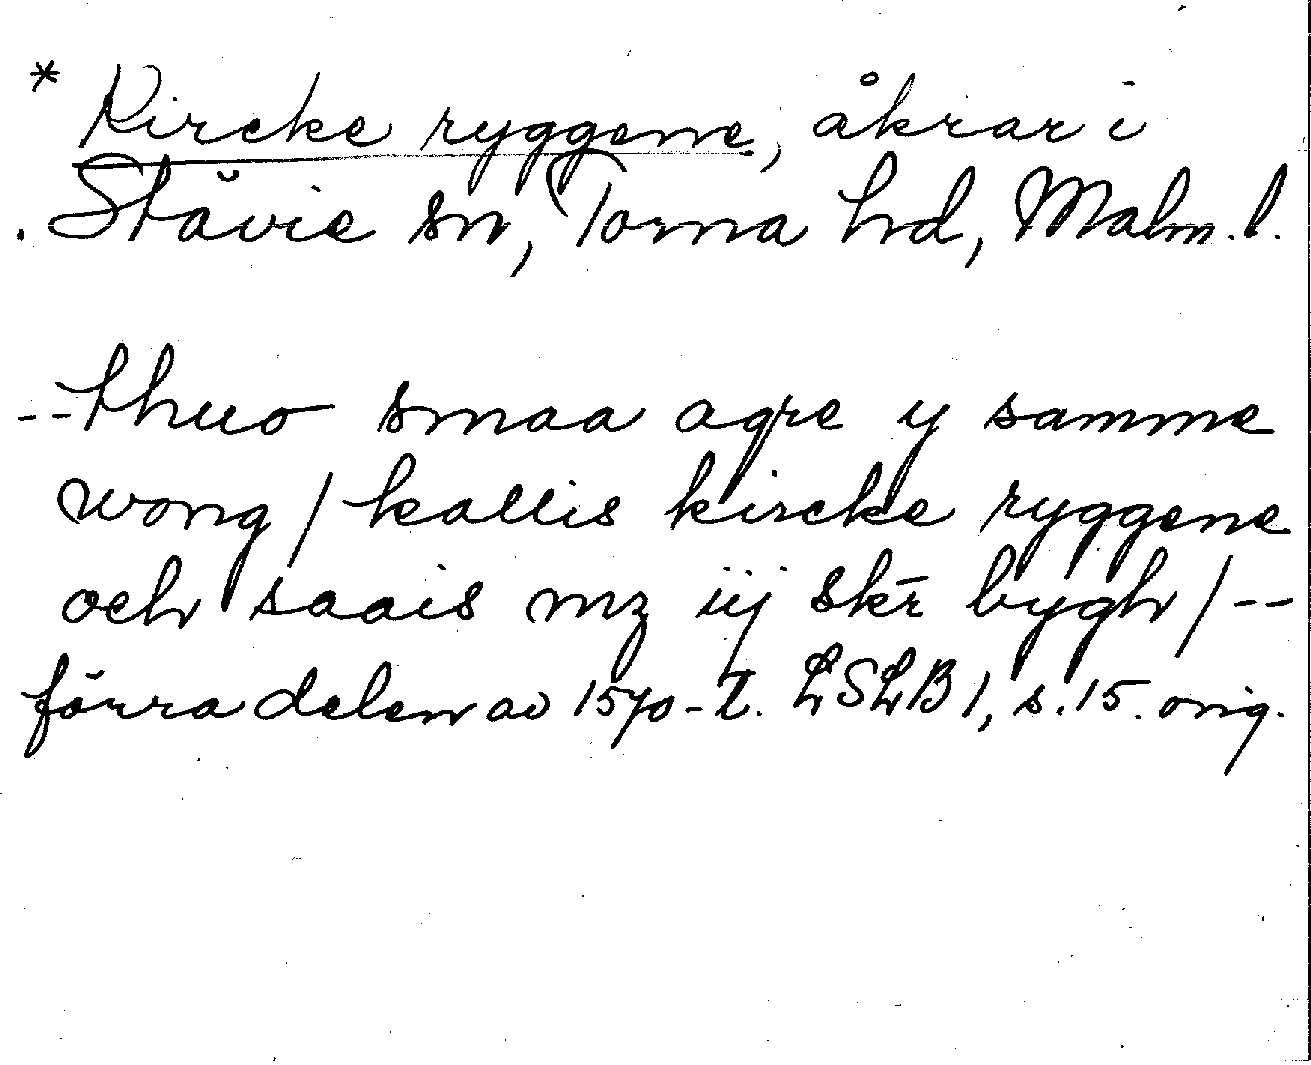 * Kircke ryggene, åkrar i
Stävie sn, Torna hd, Malm. l.
-- thuo smaa agre y samme
wong / kallis kircke ryggene
och saais mz iij skr̄ bygh / --
förra delen av 1570-t. LSLB 1, s. 15. orig.